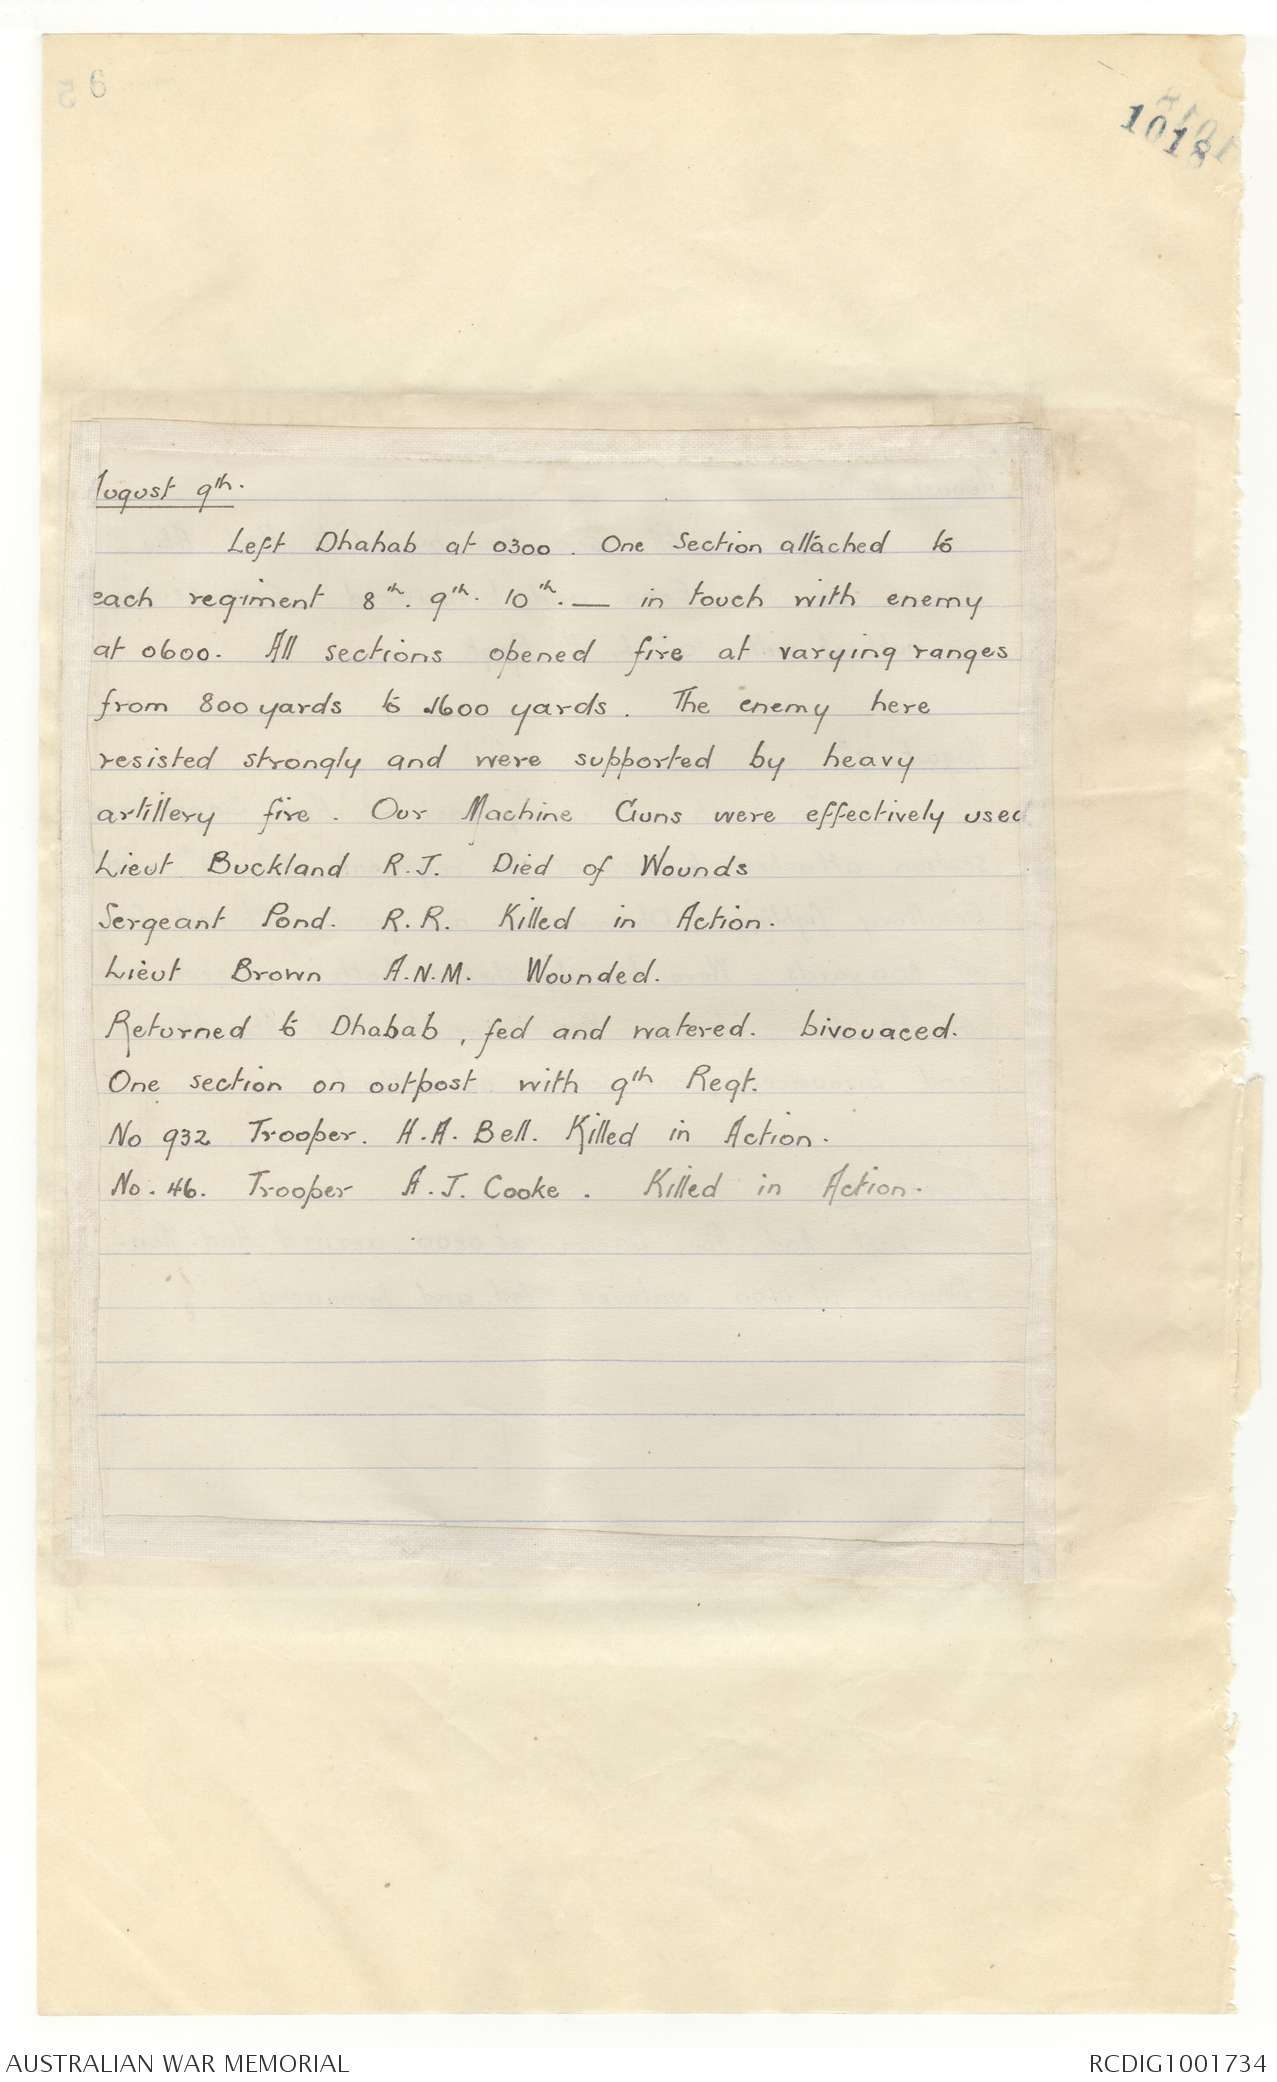 1018
August 9th.
Left Dhahab at 0300. One Section attached to
each regiment 8th. 9th. 10th. — in touch with enemy
at 0600. All sections opened fire at varying ranges
from 800 yards to 1600 yards. The enemy here
resisted strongly and were supported by heavy
artillery fire. Our Machine Guns were effectively used
Lieut Buckland R.J. Died of Wounds
Sergeant Pond. R.R. Killed in Action.
Lieut Brown A.N.M. Wounded.
Returned to Dhabab, fed and watered. bivouaced.
One section on outpost with 9th Regt.
No 932 Trooper. H.A. Bell. Killed in Action.
No. 46. Trooper A.J. Cooke. Killed in Action.
AUSTRALIAN WAR MEMORIAL
RCDIG1001734